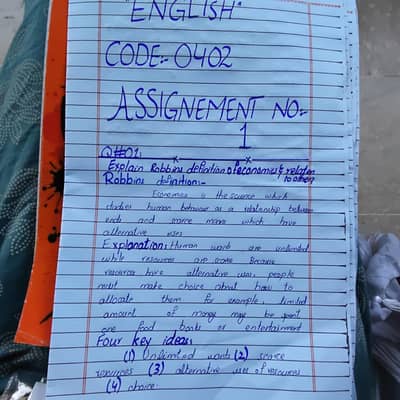 "ENGLISH"
CODE:- 0402
ASSIGNEMENT NO:-
1
Q#01:
Explain Robbins definition of economics & relation
to others
Robbins definition:-
Economics is the science which
studies human behaviour as a relationship between
ends and scarce means which have
alternative uses
Explanation: Human wants are unlimited
while resources are scarce Because
resources have alternative uses, people
must make choice about how to
allocate them for example, limited
amount of money may be spent
one food books or entertainment
Four key ideas:
(1) Unlimited wants (2) scarce
resources (3) alternative uses of resources
(4) choice